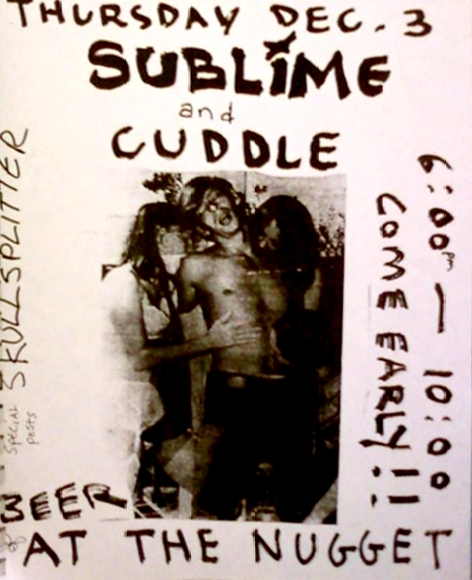 THURSDAY DEC. 3
SUBLIME
and
CUDDLE
6:00pm — 10:00
COME EARLY!!
SKULLSPLITTER
special
BEER
AT THE NUGGET